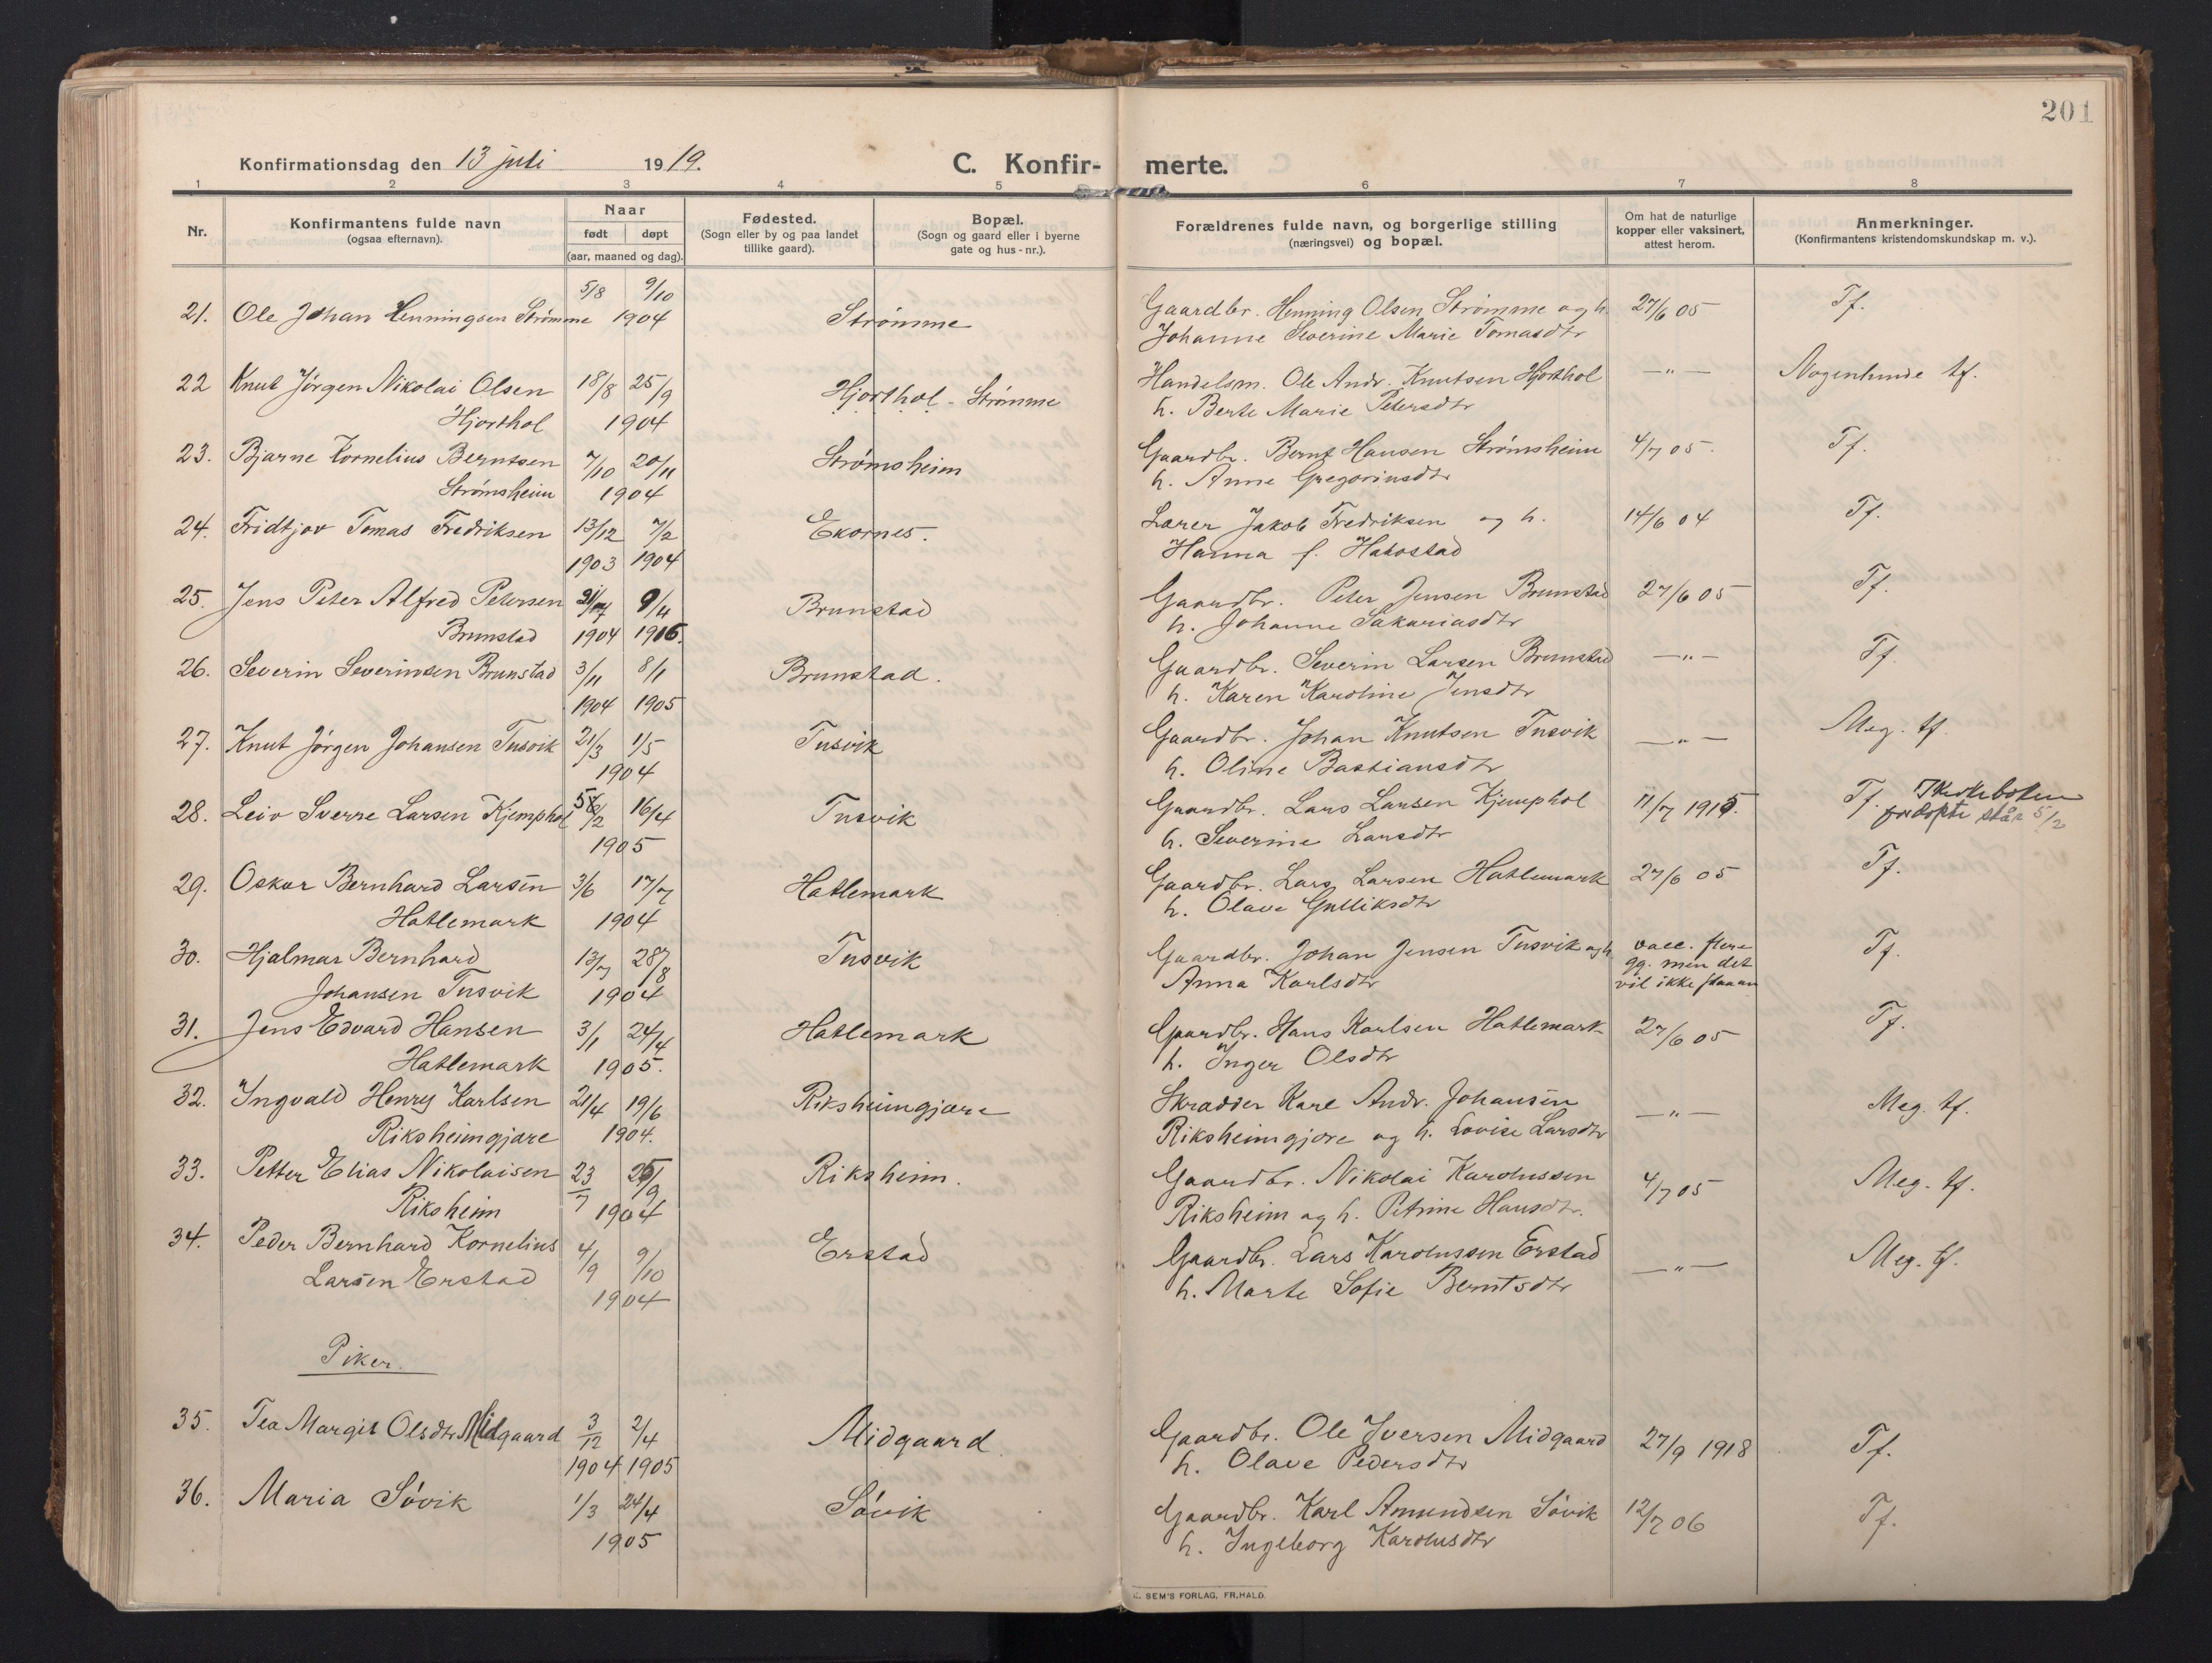 201
Konfirmationsdag den 13 juli 1919.
C. Konfir- merte.
1 2 3 4 5 6 7 8
Nr.
Konfirmantens fulde navn
(ogsaa efternavn).
Naar
født døpt
(aar, maaned og dag).
Fødested.
(Sogn eller by og paa landet
tillike gaard).
Bopæl.
(Sogn og gaard eller i byerne
gate og hus-nr.).
Forældrenes fulde navn, og borgerlige stilling
(næringsvei) og bopæl.
Om hat de naturlige
kopper eller vaksinert,
attest herom.
Anmerkninger.
(Konfirmantens kristendomskundskap m. v.).
5/8 9/10
21. Ole Johan Henningsen Strømme 1904 Strømme Gaardbr. Henning Olsen Strømme og h. 27/6 05 Tf.
Johanne Severine Marie Tomasdtr
22 Knut Jørgen Nikolai Olsen 18/8 25/9 Hjorthol - Strømme Handelsm. Ole Andr. Knutsen Hjorthol —"— Nogenlunde tf.
Hjorthol 1904 h. Berte Marie Petersdtr
23. Bjarne Kornelius Berntsen 7/10 20/11 Strømsheim Gaardbr. Bernt Hansen Strømsheim 4/7 05. Tf.
Strømsheim 1904 h. Anne Gregoriusdtr
24. Fridtjov Tomas Fredriksen 13/12 7/2 Ekornes. Lærer Jakob Fredriksen og h. 14/6 04 Tf.
1903 1904 Hanna f.
25. Jens Peter Alfred Petersen 9/4 Brunstad Gaardbr. Peter Jensen Brunstad 27/6 05 Tf.
Brunstad 1904 h. Johanne Sakariasdtr
26. Severin Severinsen Brunstad 3/11 8/1 Brunstad. Gaardbr. Severin Larsen Brunstad —"— Tf.
1904 1905 h. Karen Karoline Jensdtr
27. Knut Jørgen Johansen Tusvik 21/3 1/5 Tusvik Gaardbr. Johan Knutsen Tusvik —"— Meg. tf.
1904 h. Oline Bastiansdtr
28. Leiv Sverre Larsen Kjemphol 16/4 Tusvik Gaardbr. Lars Larsen Kjemphol 11/7 1915. Tf. I Kirkeboken
1905 h. Severine Larsdtr for døpte står 5/2
29. Oskar Bernhard Larsen 3/6 17/7 Hatlemark Gaardbr. Lars Larsen Hatlemark 27/6 05 Tf.
Hatlemark 1904 h. Olave Gulliksdtr
30. Hjalmar Bernhard 13/7 28/8 Tusvik Gaardbr. Johan Jensen Tusvik og h. vacc. flere Tf.
Johansen Tusvik 1904 Anna Karlsdtr gg. men det
vil ikke slaa an
31. Jens Edvard Hansen 3/1 24/4 Hatlemark Gaardbr. Hans Karlsen Hatlemark 27/6 05 Tf.
Hatlemark 1905. h. Inger Olsdtr
32. Ingvald Henry Karlsen 21/4 19/6 Riksheimgjære Skrædder Karl Andr. Johansen —"— Meg. tf.
Riksheimgjære 1904. Riksheimgjære og h. Lovise Larsdtr
33. Petter Elias Nikolaisen 23/7 Riksheim. Gaardbr. Nikolai Karolussen 4/7 05 Meg. tf.
Riksheim 1904 Riksheim og h. Petrine Hansdtr.
34. Peder Bernhard Kornelius 4/9 9/10 Erstad Gaardbr. Lars Karolussen Erstad —"— Meg. tf.
Larsen Erstad 1904 h. Marte Sofie Berntsdtr
Piker.
35. Tea Margit Olsdtr Midgaard 3/12 2/4 Midgaard Gaardbr. Ole Iversen Midgaard 27/9 1918 Tf.
1904 1905 h. Olave Pedersdtr
36. Maria Søvik 1/3 24/4 Søvik Gaardbr. Karl Amundsen Søvik 12/7 06 Tf.
1905 h. Ingeborg Karolusdtr
SEM'S FORLAG, FR.HALD.